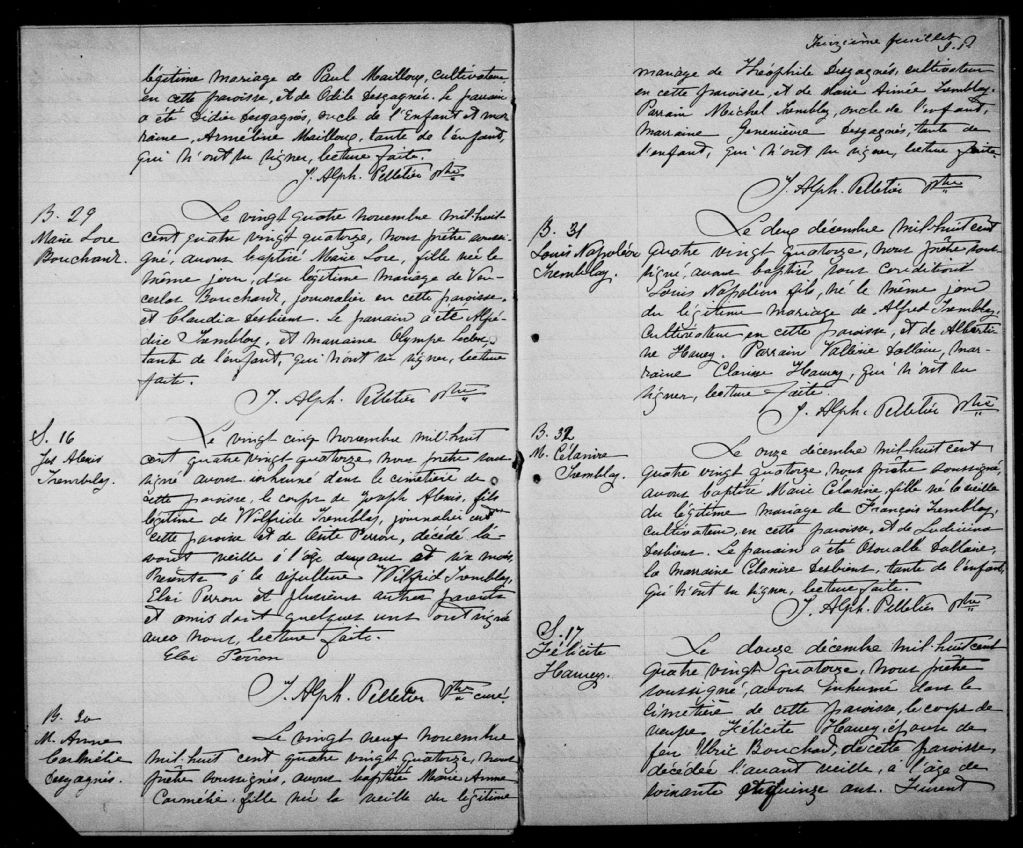 légitime mariage de Paul Mailloux, cultivateur
en cette paroisse, et de Odile Desgagnés. Le parrain
a été Didier Desgagnés, oncle de l'Enfant et mar-
raine, Arméline Mailloux, tante de l'enfant,
qui n'ont su signer, lecture faite.
J. Alph. Pelletier ptre
B. 29
Marie Lore
Bouchard.
Le vingt quatre novembre mil-huit
cent quatre vingt quatorze, nous prêtre soussi-
gné, avons baptisé Marie Lore, fille née le
même jour, du légitime mariage de Vin-
ceslas Bouchard, journalier en cette paroisse,
et Claudia Desbiens. Le parrain a été
Tremblay, et marraine Olympe Leclerc,
tante de l'enfant, qui n'ont su signer, lecture
faite.
J. Alph. Pelletier ptre
S. 16
Jos Alexis
Tremblay.
Le vingt cinq novembre mil-huit
cent quatre vingt quatorze nous prêtre sous-
signé avons inhumé dans le cimetière de
cette paroisse, le corps de Joseph Alexis, fils
légitime de Wilfride Tremblay, journalier en
cette paroisse et de Perron, décédé l'a-
vant veille à l'âge deux ans et six mois,
Présents à la sépulture Wilfrid Tremblay,
Eloi Perron et plusieurs autres parents
et amis dont quelques uns ont signé
avec nous, lecture faite.
Eloi Perron
J. Alph. Pelletier ptre curé
B. 30
M. Anne
Carmélie
Desgagnés.
Le vingt neuf novembre
mil-huit cent quatre vingt quatorze, nous
prêtre soussigné, avons baptisée Marie Anne
Carmélie, fille née la veille du légitime
feuillet
mariage de Théophile Desgagnés, cultivateur
en cette paroisse, et de Marie Aimée Tremblay.
Parrain Michel Tremblay, oncle de l'enfant,
marraine Geneviève Desgagnés, tante de
l'enfant, qui n'ont su signer, lecture faite.
J. Alph. Pelletier ptre
B. 31
Louis Napoléon
Tremblay.
Le deux décembre mil-huit cent
quatre vingt quatorze, nous prêtre sous-
signé, avons baptisé sous condition
Louis Napoléon fils, né le même jour
du légitime mariage de Alfred Tremblay,
cultivateur en cette paroisse, et de Alberti-
ne Harvey. Parrain Vallérie Dallaire, mar-
raine Clarisse Harvey, qui n'ont su
signer, lecture faite.
J. Alph. Pelletier ptre
B. 32
M. Célanire
Tremblay.
Le onze décembre mil-huit cent
quatre vingt quatorze, nous prêtre soussigné,
avons baptisé Marie Célanire, fille né la veille
du légitime mariage de François Tremblay,
cultivateur, en cette paroisse, et de
Desbiens. Le parrain a été Dallaire,
la marraine Célanire Desbiens, tante de l'enfant,
qui n'ont su signer, lecture faite.
J. Alph. Pelletier ptre
S. 17
Félicité
Harvey.
Le douze décembre mil-huit cent
quatre vingt quatorze, nous prêtre
soussigné, avons inhumé dans le
cimetière de cette paroisse, le corps de
veuve Félicité Harvey, épouse de
feu Ulric Bouchard, de cette paroisse,
décédée l'avant veille, a l'âge de
soixante et quinze ans. Furent